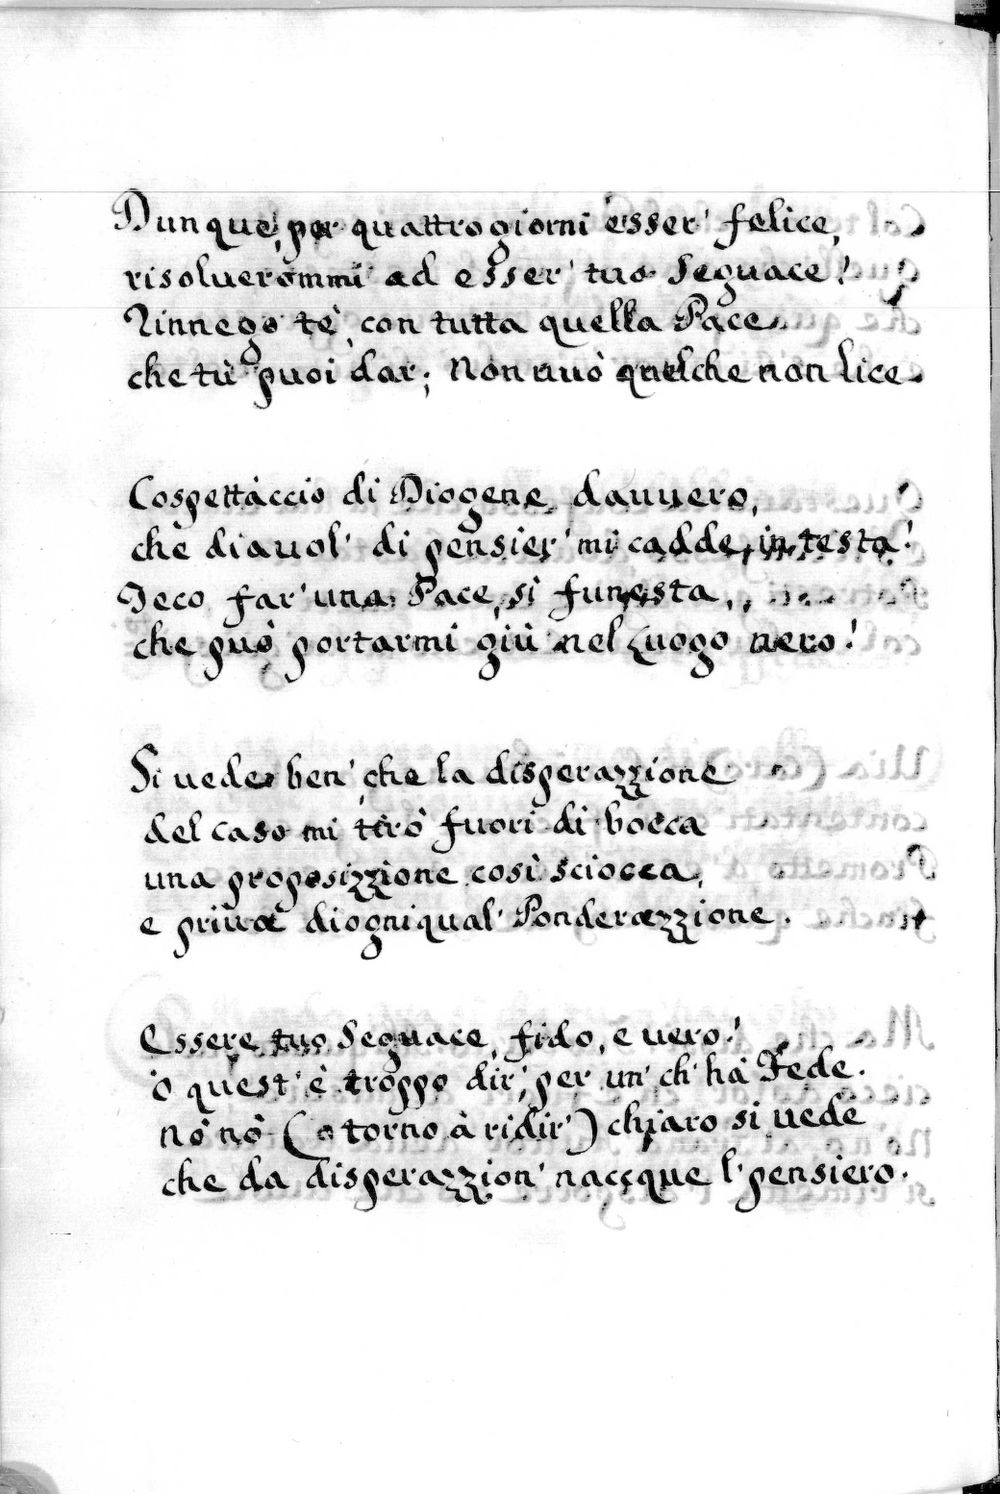 Dunque, per quattro giorni esser' felice,
risoluerommi' ad esser' tuo Seguace!
Rinnego tè, con tutta quella Pace
che tù puoi dar; Non vuò quelche non lice.
Cospettàccio di Diogene, dauuero,
che diauol' di pensier' mi cadde, in testa!
Teco far' una Pace, sì funesta,
che può portarmi giù nel Luogo nero!
Si uede ben', che la disperazzione
del caso mi tirò fuori di bocca
una proposizzione così sciocca,
e priua diogniqual' Ponderazzione.
Essere tuo Seguace, fido, e vero!
ò quest' è troppo dir', per un' ch' hà Fede.
nò nò (o torno à ridir') chiaro si uede
che da disperazzion' naccque l' pensiero.